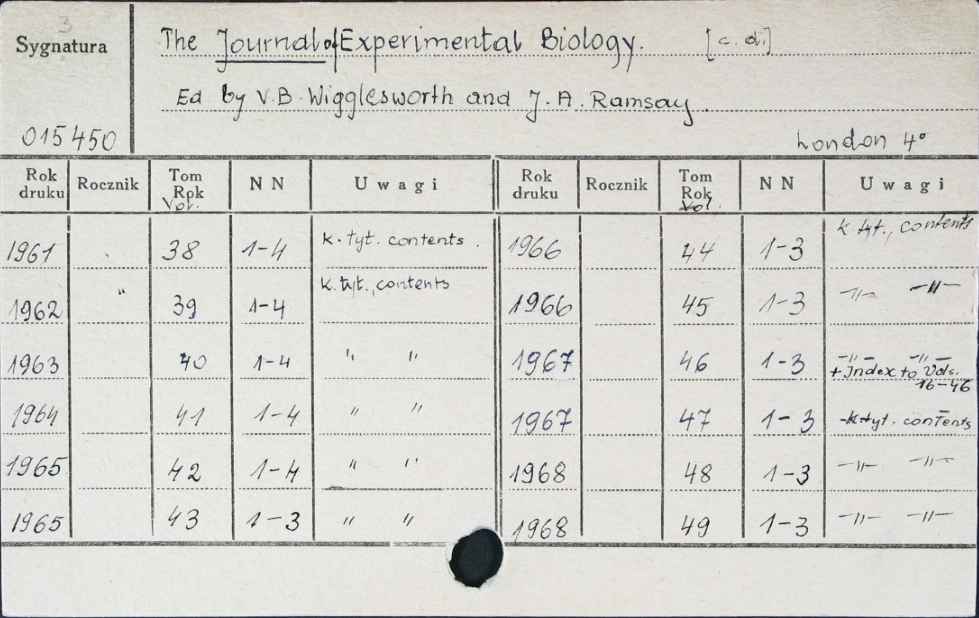 3
Sygnatura
The Journal of Experimental Biology. [c. d.]
Ed by V.B. Wigglesworth and J. A. Ramsay.
015450
London 4°
Rok druku Rocznik Tom Rok Vol. N N Uwagi Rok druku Rocznik Tom Rok Vol. N N Uwagi
1961 38 1-4 k. tyt. contents. 1966 44 1-3 k. tyt., contents
1962 " 39 1-4 k. tyt., contents 1966 45 1-3 -"- -"-
1963 40 1-4 " " 1967 46 1-3 -"- -"-
+ Index to Vols. 16-46
1964 41 1-4 " " 1967 47 1-3 k. tyt. contents
1965 42 1-4 " " 1968 48 1-3 -"- -"-
1965 43 1-3 " " 1968 49 1-3 -"- -"-